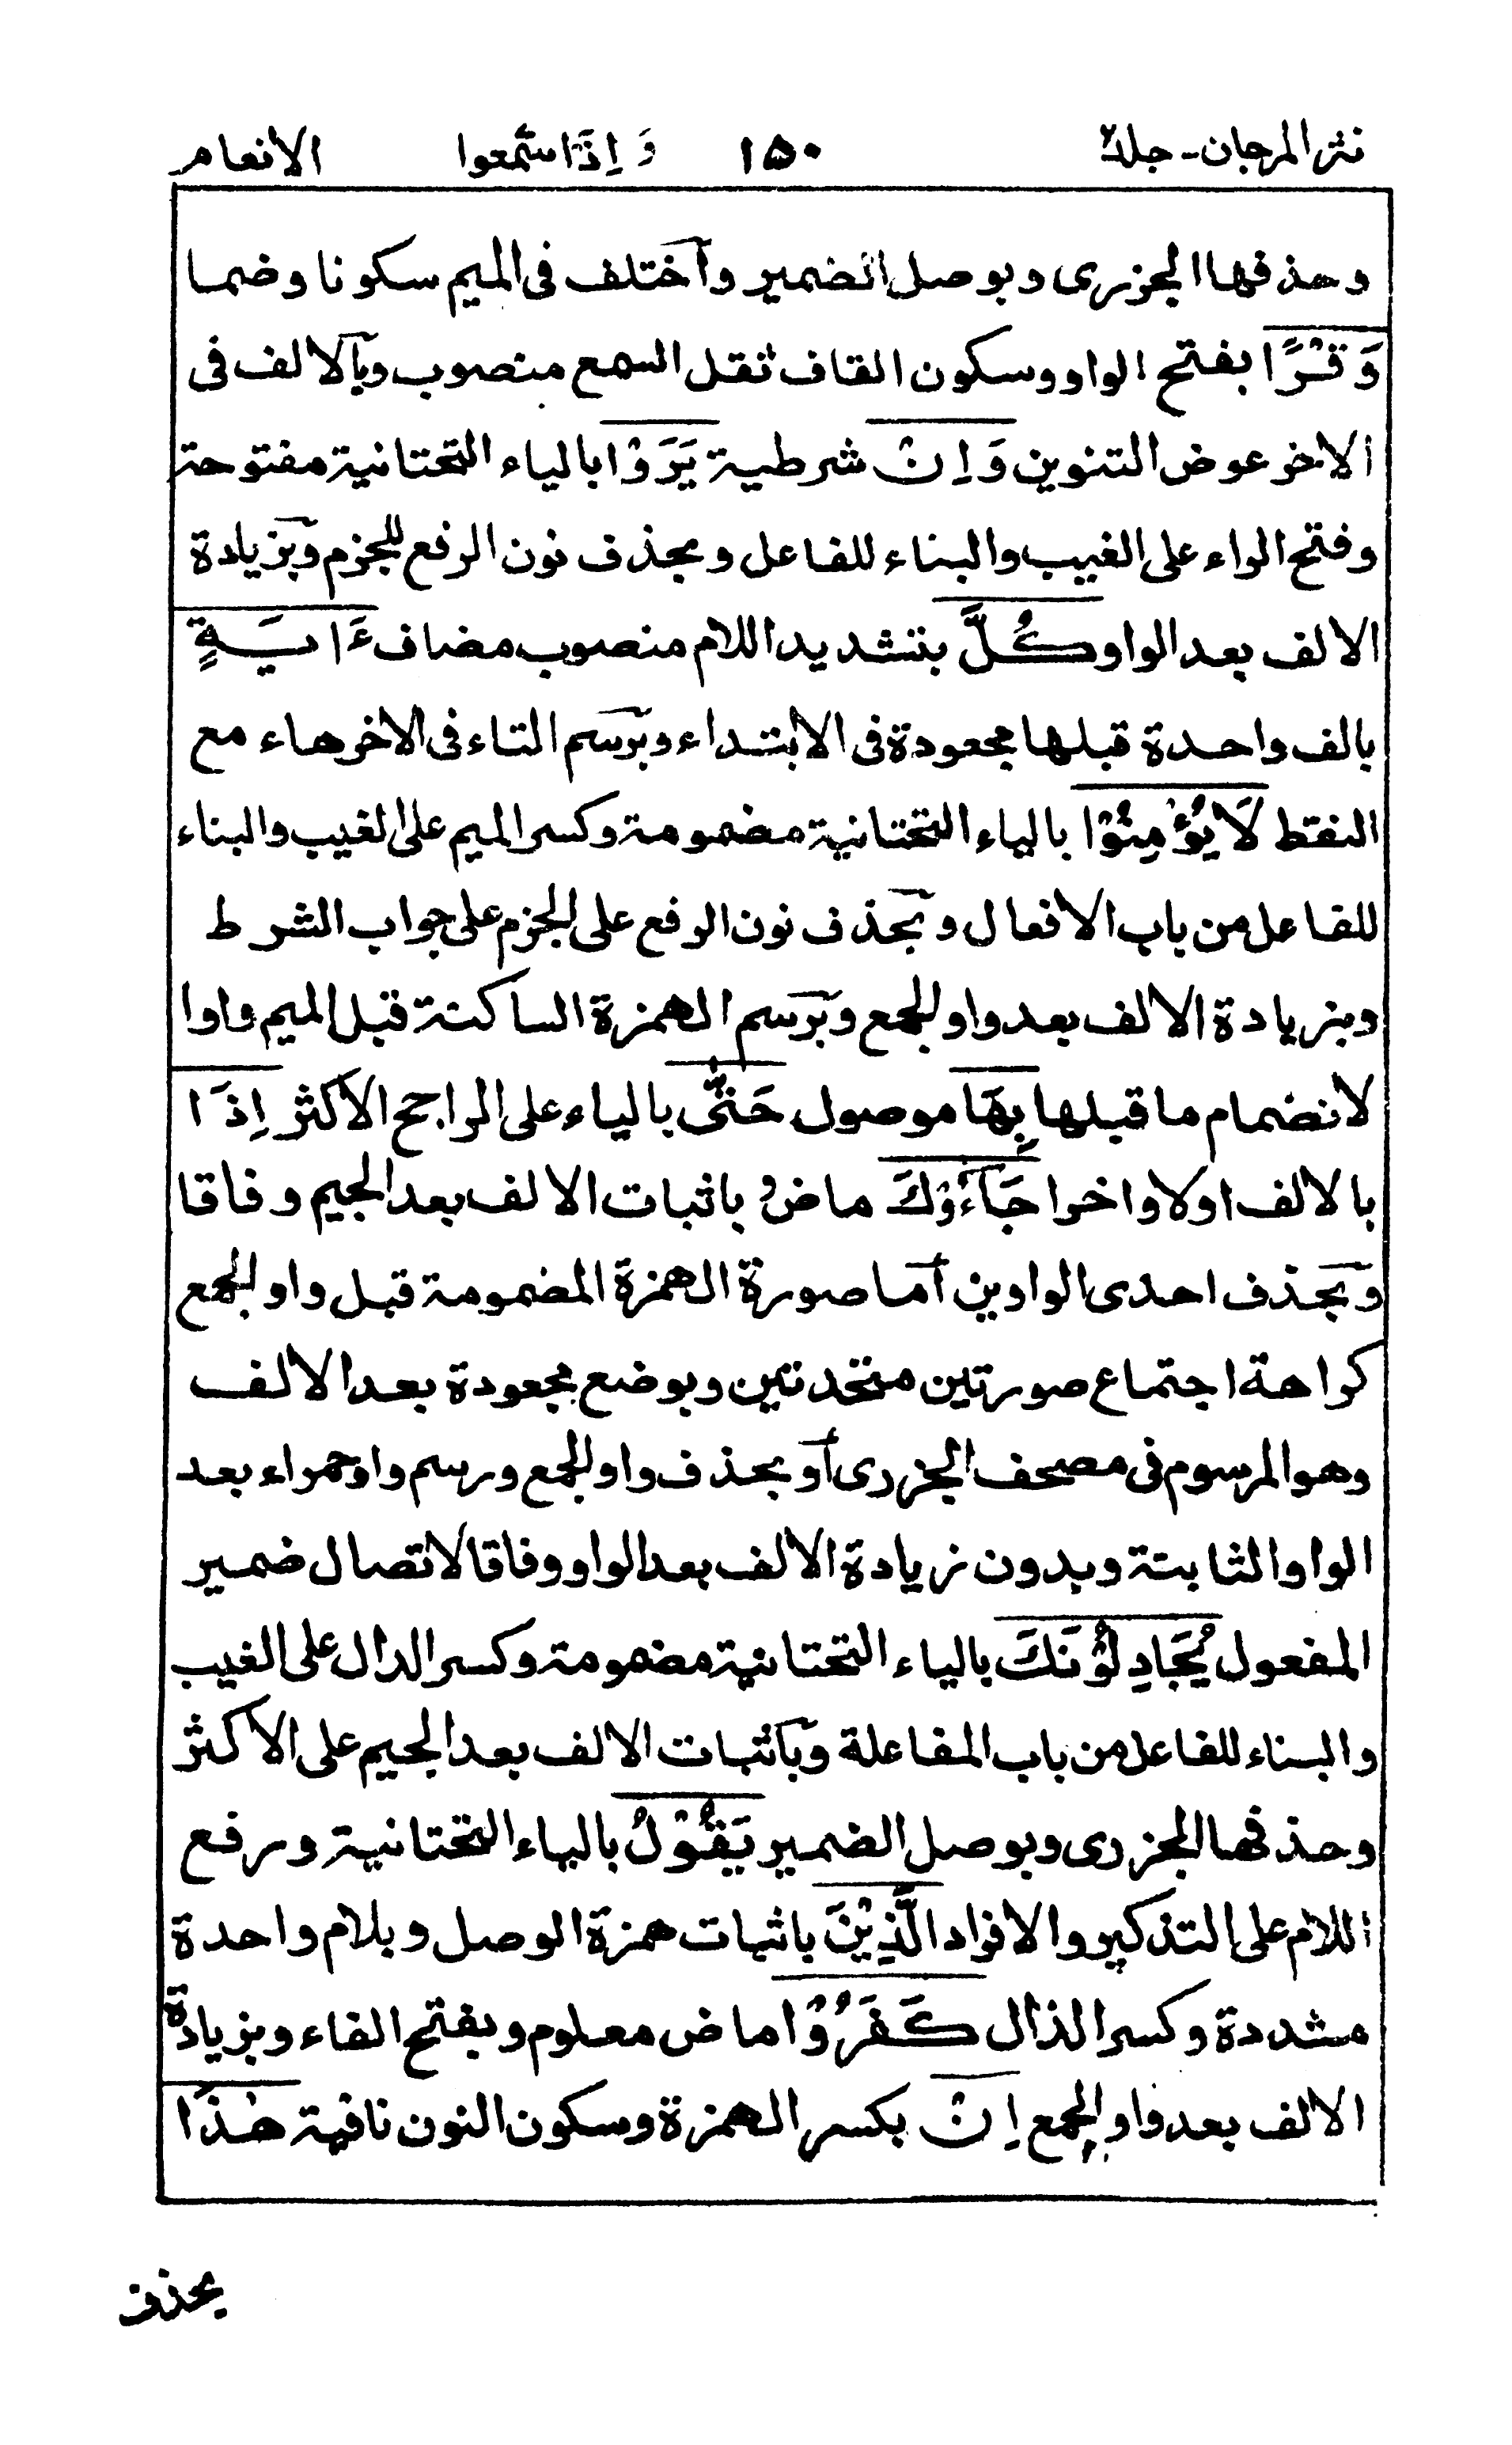 نثر المرجان - جلد٢ ١٥٠ وَ اِذَا سَمِعوا الانعام
وحذفها الجزرى وبوصل الضمير وآختلف فى الميم سكونا وضما
وَقْرًا بفتح الواو وسكون القاف ثقل السمع منصوب وبآلالف فى
الاخر عوض التنوين وَاِنْ شرطية يَرَوْا بالياء التحتانية مفتوحة
وفتح الراء على الغيب والبناء للفاعل وبحذف نون الرفع للجزم وبزيادة
الالف بعد الواو كُلَّ بتشديد اللام منصوب مضاف ءَايَةٍ
بالف واحدة قبلها مجعودة فى الابتداء وبرسم التاء فى الاخرهاء مع
النقط لَا يُؤْمِنُوْا بالياء التحتانية مضمومة وكسر الميم على الغيب والبناء
للفاعل من باب الافعال وبحذف نون الرفع على الجزم على جواب الشرط
وبزيادة الالف بعد واو الجمع وبرسم الهمزة الساكنة قبل الميم واوا
لانضمام ما قبلها بِهَا موصول حَتّٰى بالياء على الراجح الاكثر اِذَا
بالالف اولا واخرا جَآءُوْكَ ماضٍ باثبات الالف بعد الجيم وفاقا
وبحذف احدى الواوين آما صورة الهمزة المضمومة قبل واو الجمع
كراهة اجتماع صورتين متحدتين وبوضع مجعودة بعد الالف
وهو المرسوم فى مصحف الجزرى آو بحذف واو الجمع ورسم واو حمراء بعد
الواو الثابتة وبدون زيادة الالف بعد الواو وفاقا لاتصال ضمير
المفعول يُجَادِلُوْنَكَ بالياء التحتانية مضمومة وكسر الدال على الغيب
والبناء للفاعل من باب المفاعلة وبآثبات الالف بعد الجيم على الاكثر
وحذفها الجزرى وبوصل الضمير يَقُوْلُ بالياء التحتانية ورفع
اللام على التذكير والافراد الَّذِيْنَ باثبات همزة الوصل وبلام واحدة
مشددة وكسر الذال كَفَرُوْا ماض معلوم وبفتح الفاء وبزيادة
الالف بعد واو الجمع اِنْ بكسر الهمزة وسكون النون نافية هٰذَا
بحذف